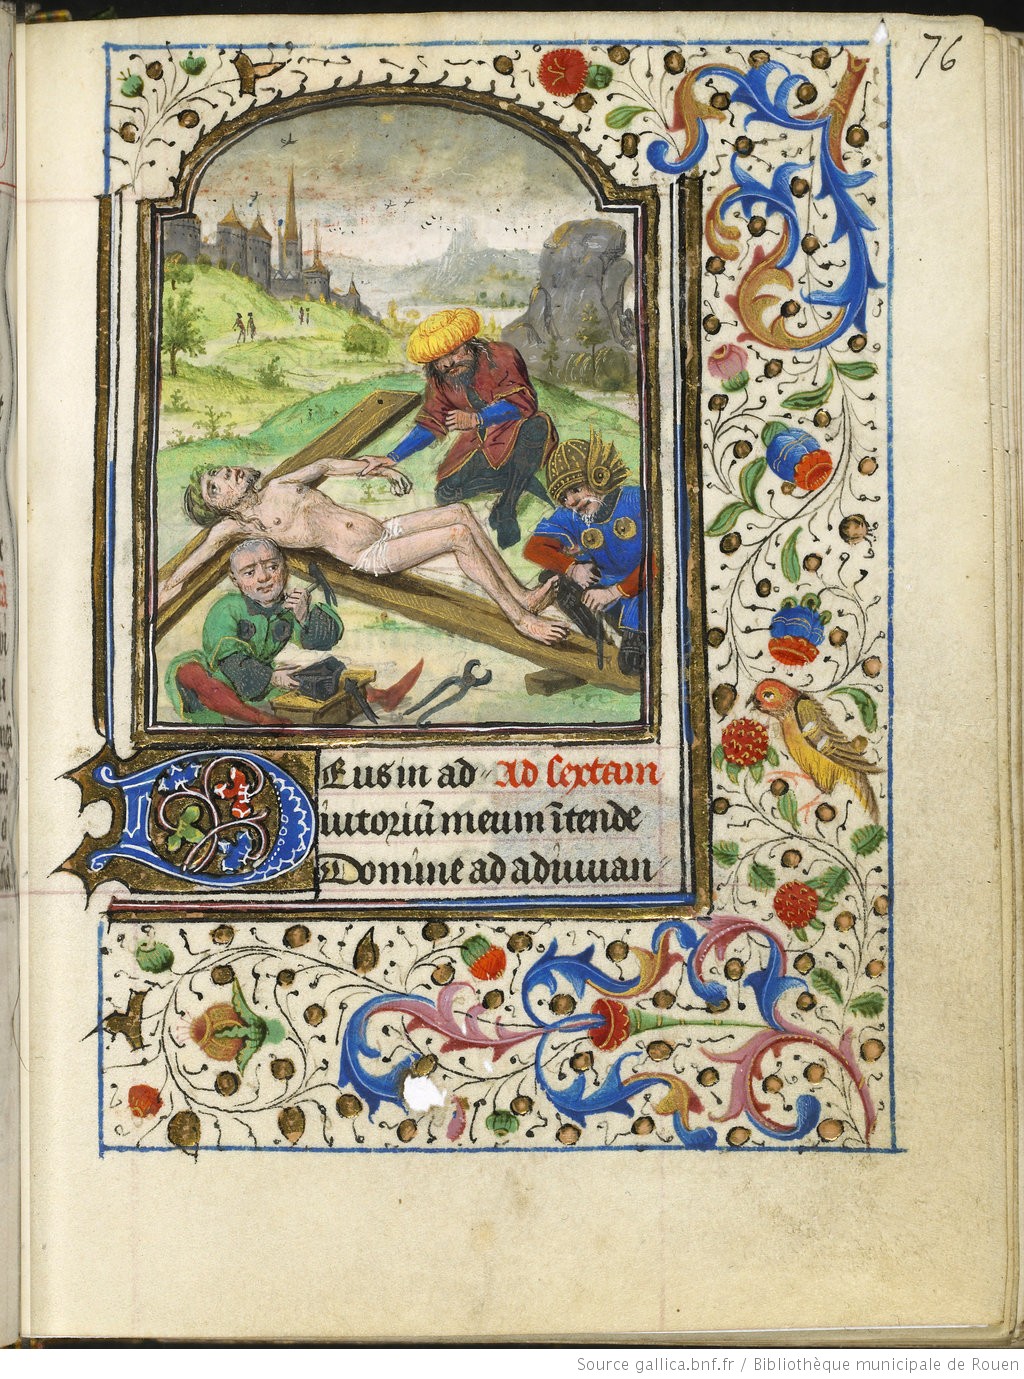 76
Deus in ad Ad sextam
iutoriū meum ītende
Domine ad adiuuan
Source gallica.bnf.fr / Bibliothèque municipale de Rouen